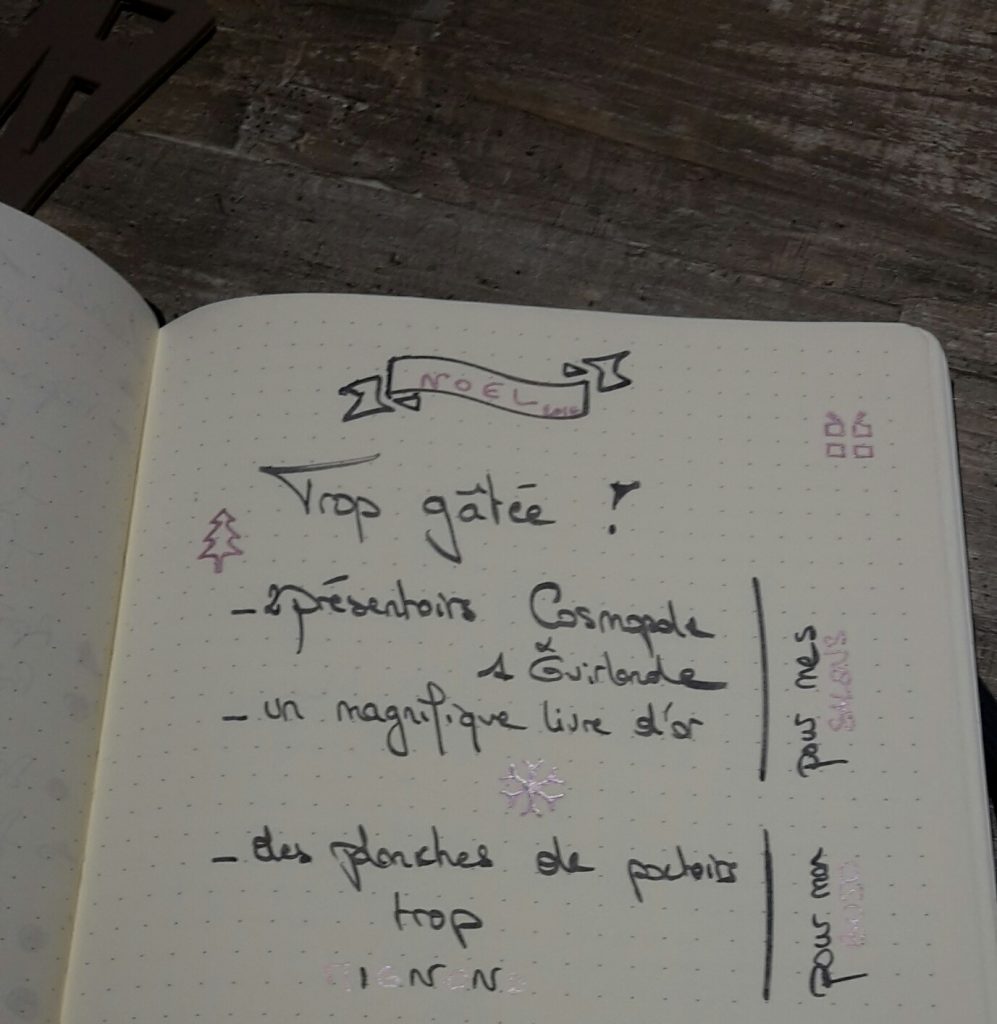 NOËL
Trop gâtée !
- 2 présentoirs Cosmopole
& 1 Guirlande
- un magnifique livre d'or
pour mes
SALONS
- des planches de pochoirs
trop
MIGNONS
pour mon
BUJO